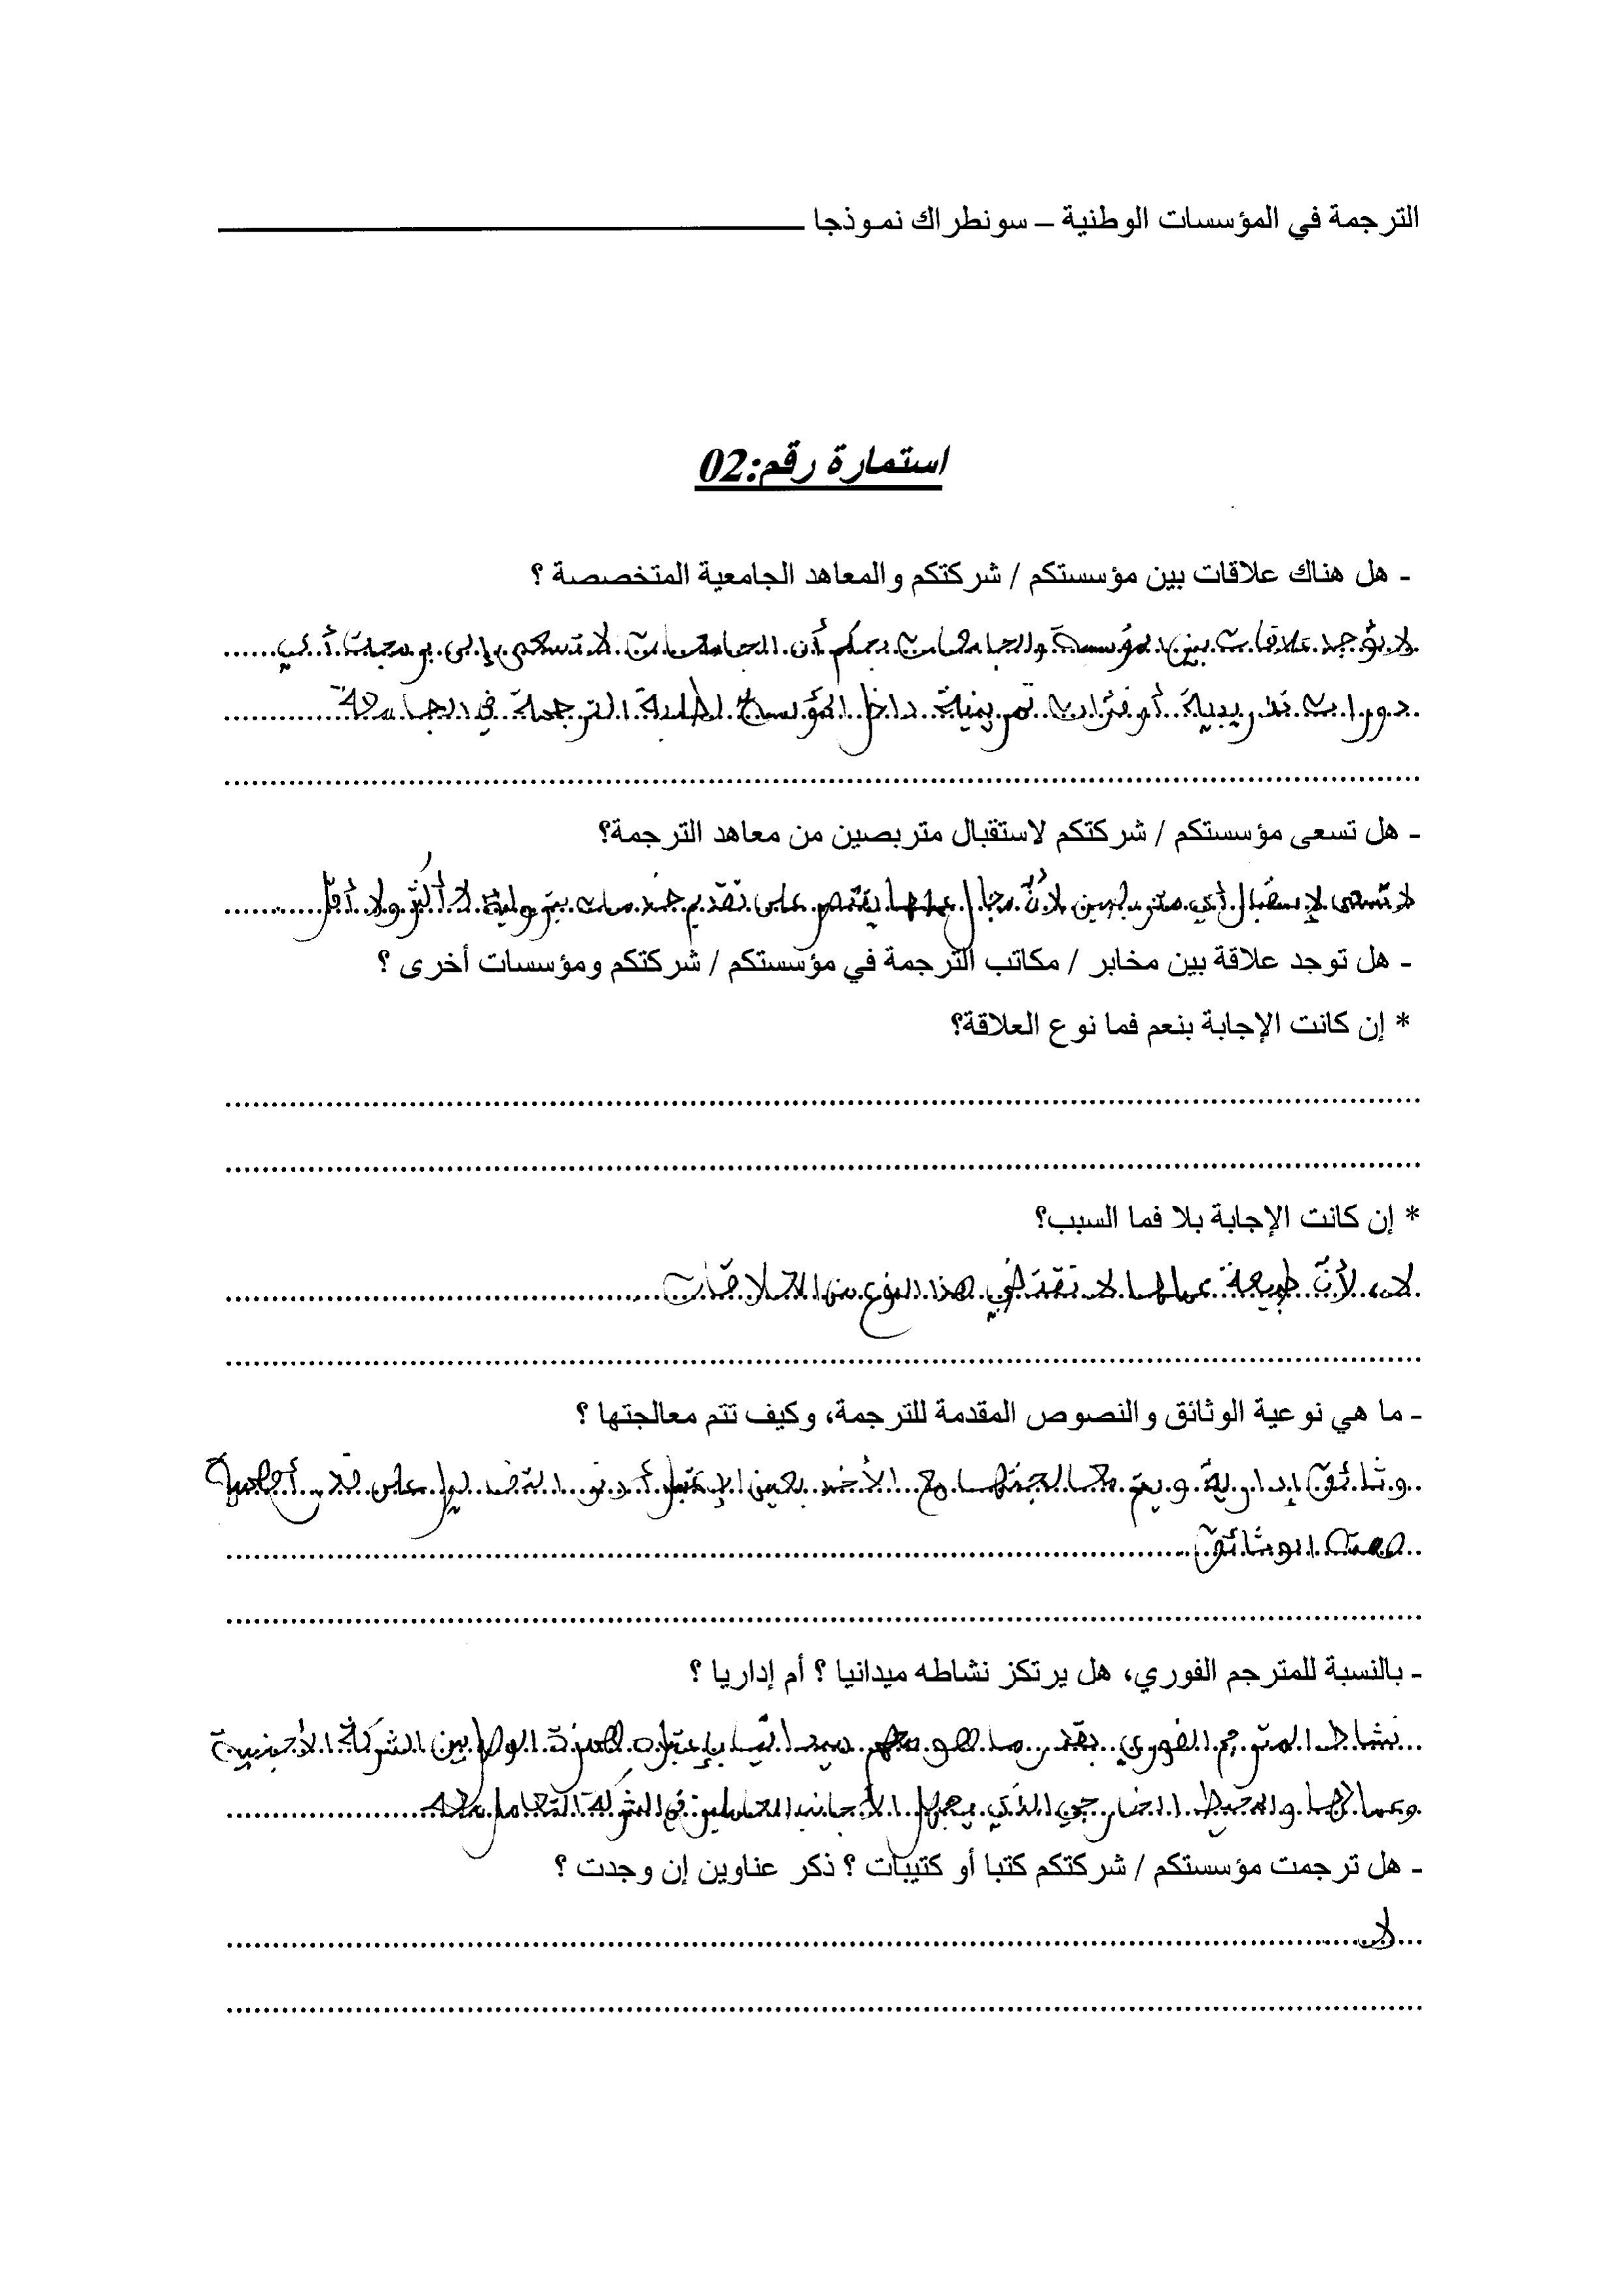 الترجمة في المؤسسات الوطنية – سونطراك نموذجا
استمارة رقم:02
- هل هناك علاقات بين مؤسستكم / شركتكم والمعاهد الجامعية المتخصصة ؟
لا يوجد علاقات بين المؤسسة والجامعات بحكم أن الجامعات لا تسعى إلى برمجة أي
دورات تدريبية أو فترات تمرينية داخل المؤسسة لطلبة الترجمة في الجامعة
- هل تسعى مؤسستكم / شركتكم لاستقبال متربصين من معاهد الترجمة؟
لا تسعى لإستقبال أي متربصين لأنّ مجال عملها يقتصر على تقديم خدمات بترولية لا أكثر ولا أقل
- هل توجد علاقة بين مخابر / مكاتب الترجمة في مؤسستكم / شركتكم ومؤسسات أخرى ؟
* إن كانت الإجابة بنعم فما نوع العلاقة؟
* إن كانت الإجابة بلا فما السبب؟
لا، لأنّ طبيعة عملها لا تقتضي هذا النوع من العلاقات
- ما هي نوعية الوثائق والنصوص المقدمة للترجمة، وكيف تتم معالجتها ؟
وثائق إدارية ويتم معالجتها مع الأخذ بعين الإعتبار أدنى التفاصيل على قدر أهمية
هذه الوثائق
- بالنسبة للمترجم الفوري، هل يرتكز نشاطه ميدانيا ؟ أم إداريا ؟
نشاط المترجم الفوري بقدر ما هو مهم ميدانيا بإعتباره همزة الوصل بين الشركة الأجنبية
وعمالها والمحيط الخارجي الذي يجهل الأجانب العاملين في الشركة التعامل معه
- هل ترجمت مؤسستكم / شركتكم كتبا أو كتيبات ؟ ذكر عناوين إن وجدت ؟
لا